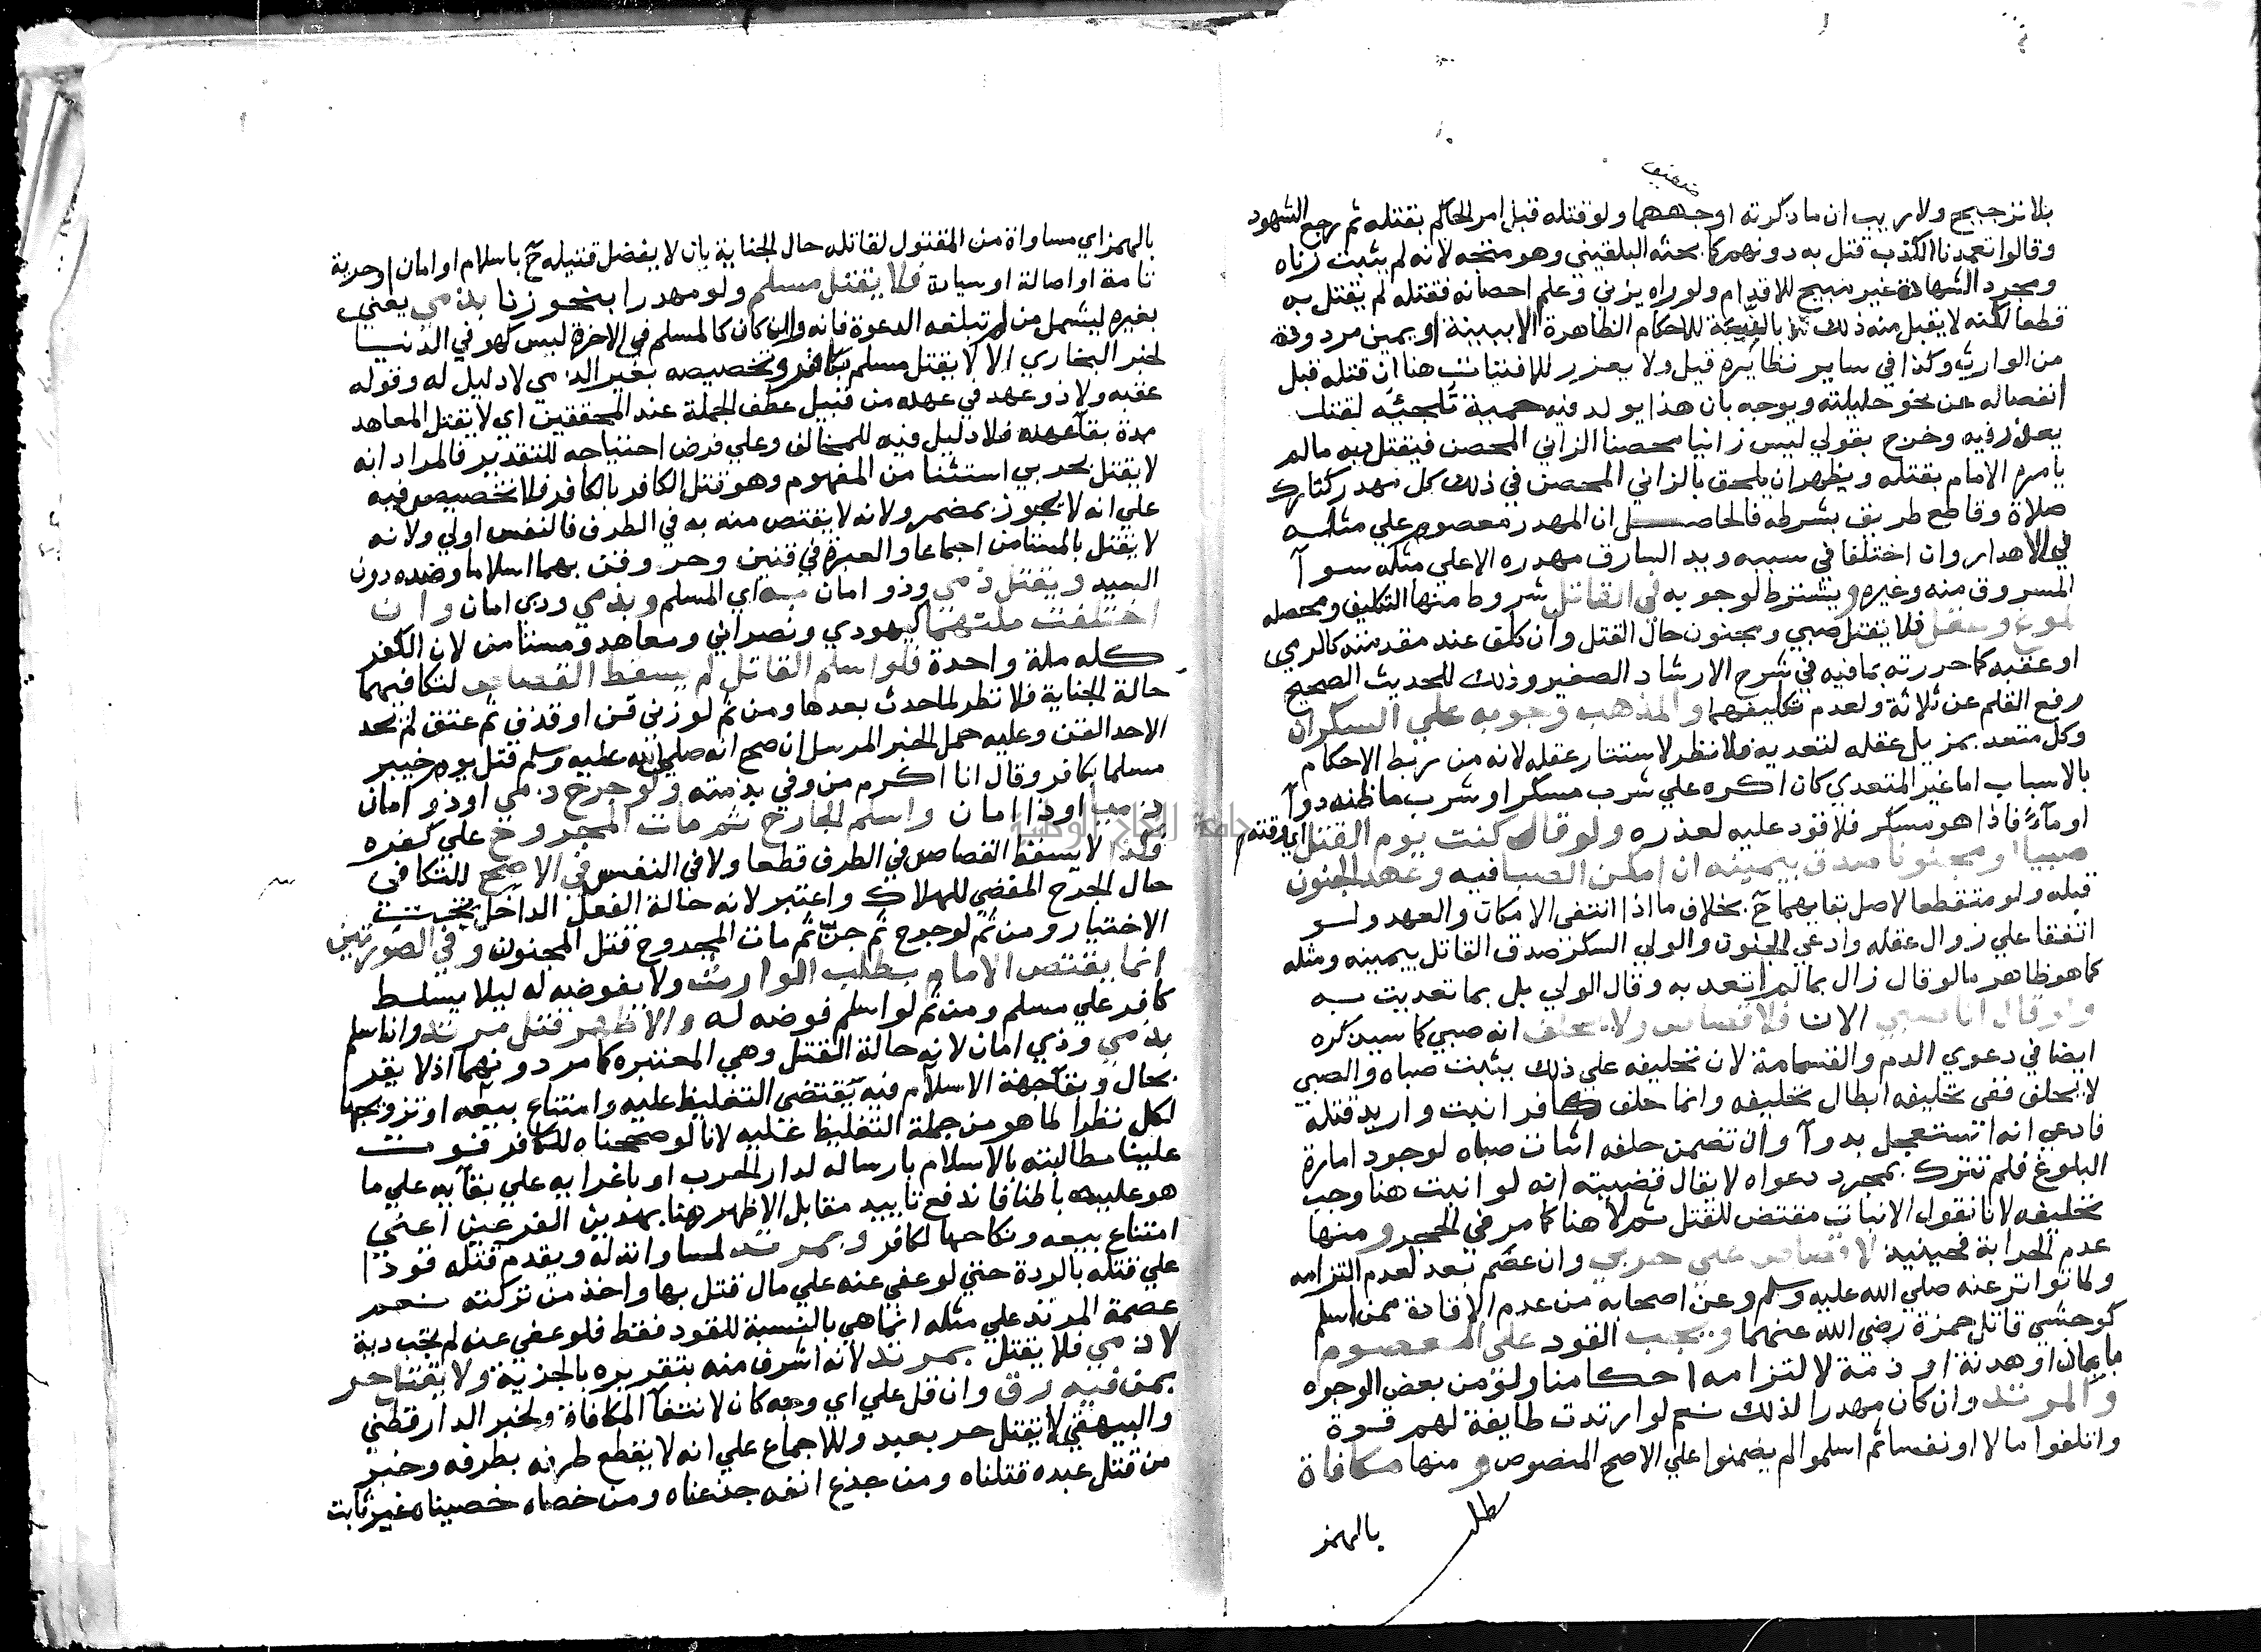 ضعيف
بلا ترجيح ولا ريب ان ما ذكرته اوجههما ولو قتله قبل امر الحاكم بقتله ثم رجع الشهود
وقالوا تعمدنا الكذب قتل به دونهم كما بحثه البلقيني وهو متجه لانه لم يثبت زناه
ومجرد الشهادة غير مبيح للاقدام ولو راه يزني وعلم احصانه فقتله لم يقتل به
قطعا لكنه لا يقبل منه ذلك بالنسبة للاحكام الظاهرة الا ببينة او يمين مردودة
من الوارث وكذا في ساير نظائره قيل ولا يعزر للافتيات هنا ان قتله قبل
انفصاله عن نحو حليلته ويوجه بان هذا يولد فيه حمية تلجئه لقتله
يعذر فيه وخرج بقولي ليس زانيا محصنا الزاني المحصن فيقتل به ما لم
يامره الامام بقتله ويظهر ان يلحق بالزاني المحصن في ذلك كل مهدر كتارك
صلاة وقاطع طريق بشرطه فالحاصل ان المهدر معصوم علي مثله
في الاهدار وان اختلفا في سببه ويد السارق مهدره الا علي مثله سوآ
المسروق منه وغيره ويشترط لوجوبه في القاتل شروط منها التكليف ومحصله
بلوغ وعقل فلا يقتل صبي ومجنون حال القتل وان كلف عند مقدمته كالرمي
او عقبه كما حررته بما فيه في شرح الارشاد الصغير وذلك للحديث الصحيح
رفع القلم عن ثلاثة ولعدم تكليفهما والمذهب وجوبه علي السكران
وكل متعد بمزيل عقله لتعديه فلا نظر لاستتار عقله لانه من ربط الاحكام
بالاسباب اما غير المتعدي كان اكره علي شرب مسكر او شرب ما ظنه دوآ
او مآءً فاذا هو مسكر فلا قود عليه لعذره ولو قال كنت يوم القتل اي وقته
صبيا او مجنونا صدق بيمينه ان امكن الصبا فيه وعهد الجنون
قبله ولو متقطعا لاصل بقايهما ح بخلاف ما اذا انتفى الامكان والعهد ولو
اتفقا علي زوال عقله وادعي الجنون والولي السكر صدق القاتل بيمينه ومثله
كما هو ظاهر ما لو قال زال بما لم اتعد به وقال الولي بل بما تعديت به
ولو قال انا صبي الان فلا قصاص ولا يحلف انه صبي كما سيذكره
ايضا في دعوي الدم والقسامة لان تحليفه علي ذلك يثبت صباه والصبي
لا يحلف ففي تحليفه ابطال تحليفه وانما حلف كافر انبت واريد قتله
فادعي انه استعجل بدوآ وان تضمن حلفه اثبات صباه لوجود امارة
البلوغ فلم تترك بمجرد دعواه لا يقال قضيته انه لو انبت هنا وجب
تحليفه لانا نقول الانبات مقتض للقتل ثم لا هنا كما مر في الحجر ومنها
عدم الحرابة فحينيذ لا قصاص علي حربي وان عصم بعد لعدم التزامه
ولما تواتر عنه صلي الله عليه وسلم وعن اصحابه من عدم الاقادة ممن اسلم
كوحشي قاتل حمزة رضي الله عنهما ويجب القود علي المعصوم
بايمان او هدنة او ذمة لالتزامه احكامنا ولو من بعض الوجوه
والمرتد وان كان مهدرا لذلك نعم لو ارتدت طايفة لهم قوة
واتلفوا مالا او نفسا ثم اسلموا لم يضمنوا علي الاصح المنصوص ومنها مكافاة
بالهمز
بالهمز اي مساواة من المقتول لقاتله حال الجناية بان لا يفضل قتيله ح باسلام او امان او حرية
تامة او اصالة او سيادة فلا يقتل مسلم ولو مهدرا بنحو زنا بذمي يعني
بغيره ليشمل من لم تبلغه الدعوة فانه وان كان كالمسلم في الاخرة ليس كهو في الدنيا
لخبر البخاري الا لا يقتل مسلم بكافر وتخصيصه بغير الذمي لا دليل له وقوله
عقبه ولا ذو عهد في عهده من قبيل عطف الجملة عند المحققين اي لا يقتل المعاهد
مدة بقآ عهده فلا دليل فيه للمخالف وعلي فرض احتياجه للتقدير فالمراد انه
لا يقتل بحربي استثنا من المفهوم وهو قتل الكافر بالكافر فلا تخصيص فيه
علي انه لا يجوز بمضمر ولانه لا يقتص منه به في الطرف فالنفس اولي ولانه
لا يقتل بالمستامن اجماعا والعبرة في قنين وحر وقن بهما اسلاما وضده دون
السيد ويقتل ذمي وذو امان به اي المسلم وبذمي وذي امان وان
اختلفت ملتهما كيهودي ونصراني ومعاهد ومستامن لان الكفر
كله ملة واحدة فلو اسلم القاتل لم يسقط القصاص لتكافيهما
حالة الجناية فلا نظر لما حدث بعدها ومن ثم لو زنى قن او قذف ثم عتق لم يحد
الا حد القن وعليه حمل الخبر المرسل ان صح انه صلي الله عليه وسلم قتل يوم خيبر
مسلما بكافر وقال انا اكرم من وفي بذمته ولو جرح ذمي او ذو امان
ذميا او ذا امان واسلم الجارح ثم مات المجروح علي كفره
فكذا لا يسقط القصاص في الطرف قطعا ولا في النفس في الاصح للتكافي
حال الجرح المفضي للهلاك واعتبر لانه حالة الفعل الداخل تحت
الاختيار ومن ثم لو جرح ثم جن ثم مات المجروح قتل المجنون وفي الصورتين
انما يقتص الامام بطلب الوارث ولا يفوضه له ليلا يسلط
كافر علي مسلم ومن ثم لو اسلم فوضه له والاظهر قتل مرتد وان اسلم
بذمي وذي امان لانه حالة القتل وهي المعتبره كما مر دونهما اذ لا يقر
بحال وبقآ جهة الاسلام فيه يقتضي التغليظ عليه وامتناع بيعه او تزويجها
لكل نظرا لما هو من جملة التغليظ عليه لانا لو صححناه للكافر فوت
علينا مطالبته بالاسلام بارساله لدار الحرب او باغرايه علي بقآيه علي ما
هو عليه باطنا فاندفع تاييد مقابل الاظهر هنا بهذين الفرعين اعني
امتناع بيعه ونكاحها لكافر وبمرتد لمساواته له ويقدم قتله قودا
علي قتله بالردة حتي لو عفي عنه علي مال قتل بها واخذ من تركته نعم
عصمة المرتد علي مثله انما هي بالنسبة للقود فقط فلو عفي عنه لم تجب دية
لا ذمي فلا يقتل بمرتد لانه اشرف منه بتقريره بالجزية ولا يقتل حر
بمن فيه رق وان قل علي اي وجه كان لانتفآ المكافاة ولخبر الدارقطني
والبيهقي لا يقتل حر بعبد وللاجماع علي انه لا يقطع طرفه بطرفه وخبر
من قتل عبده قتلناه ومن جدع انفه جدعناه ومن خصاه خصيناه غير ثابت